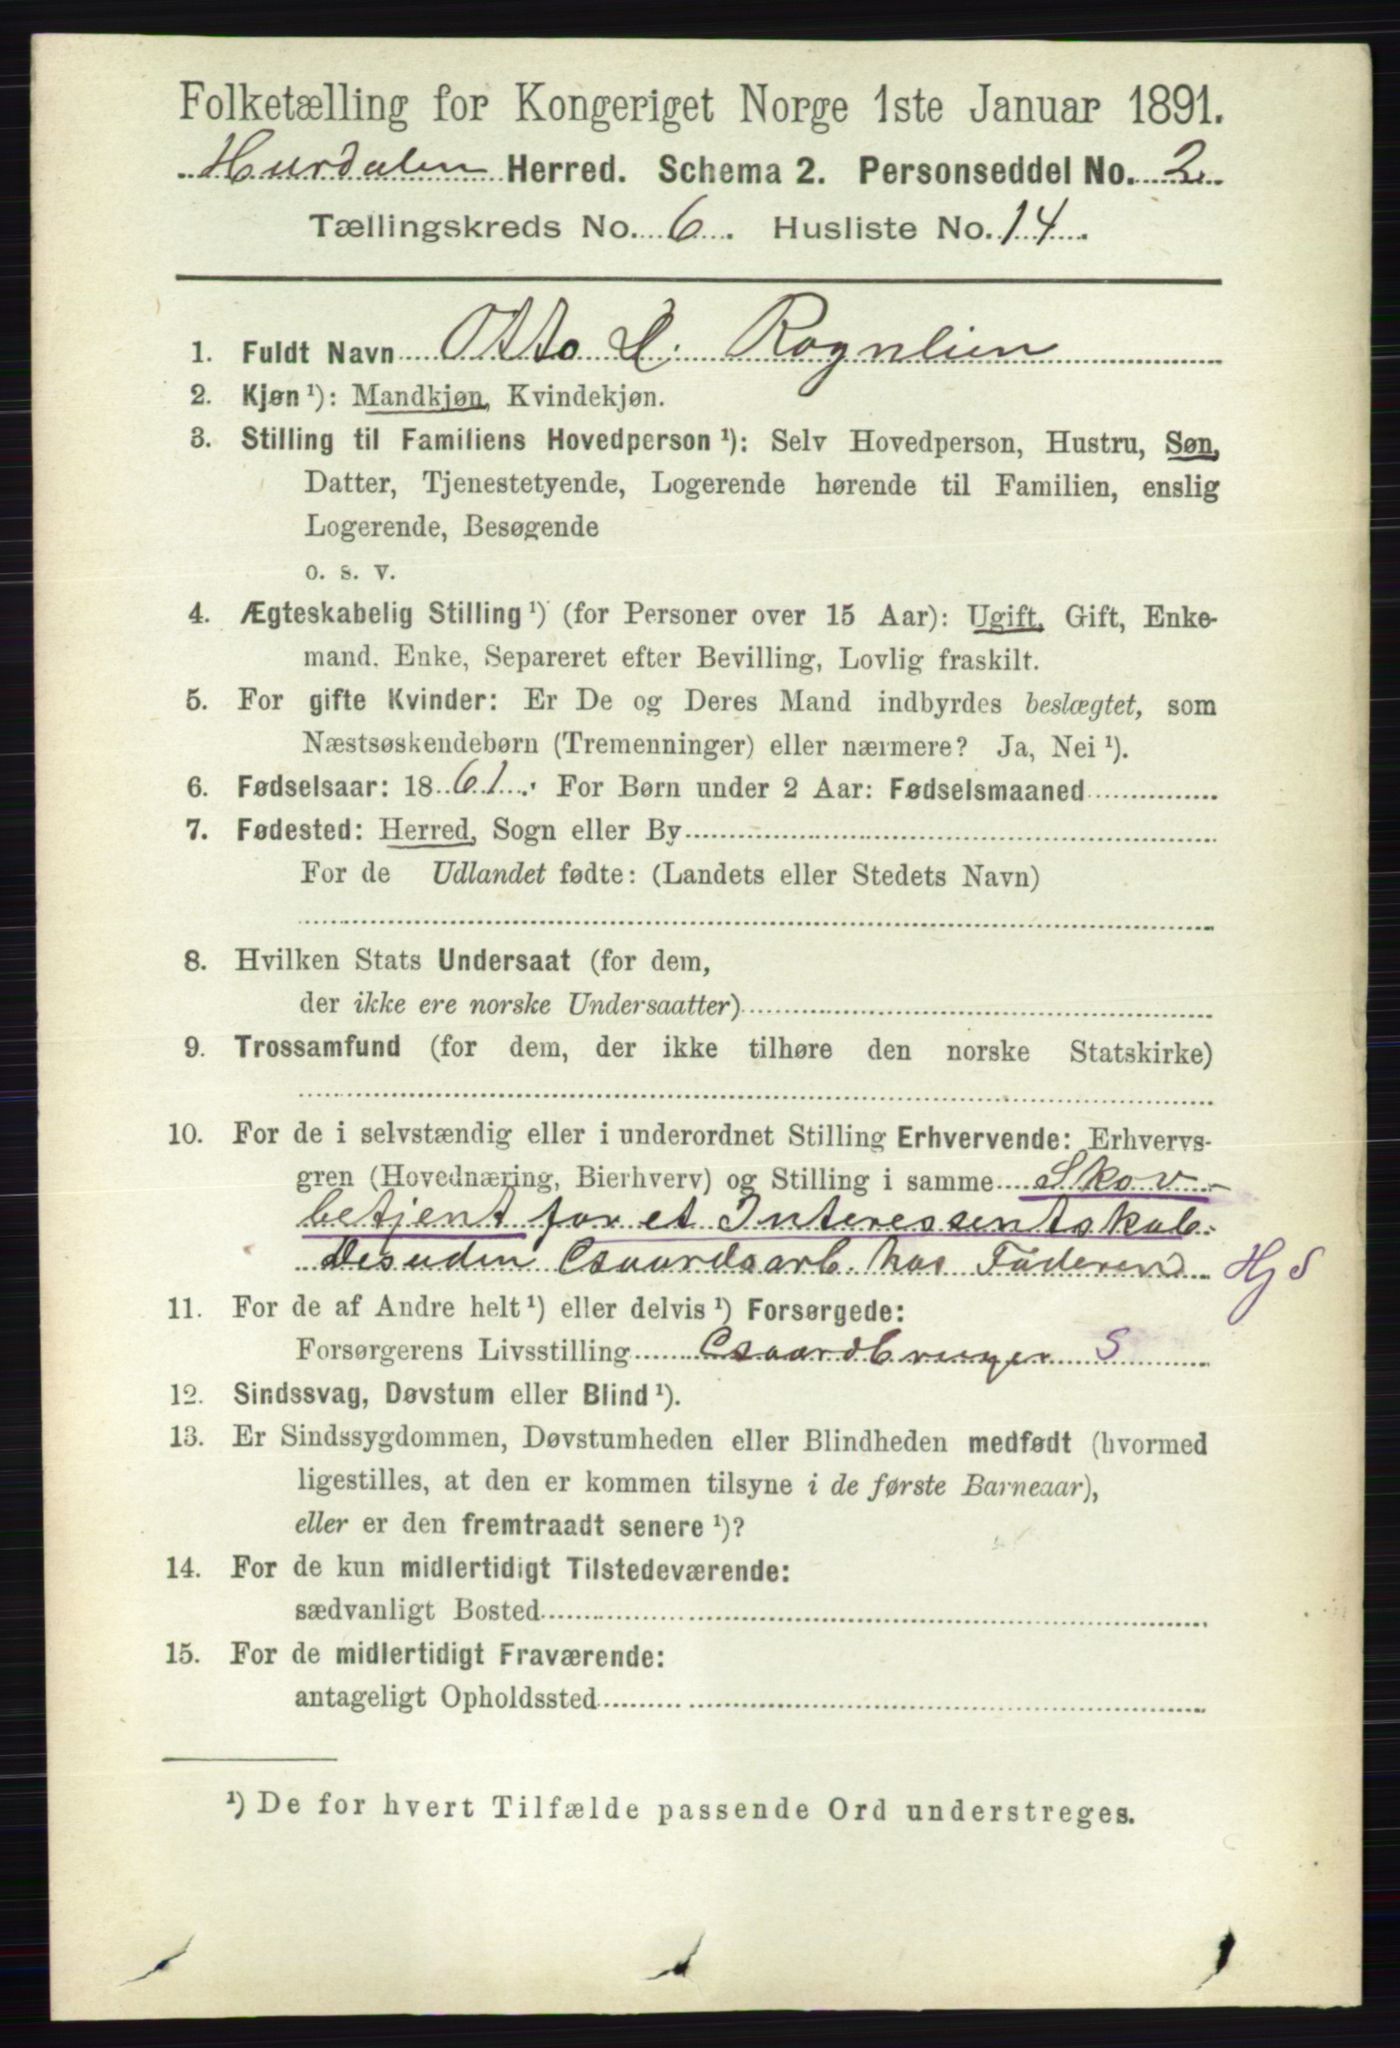 Folketælling for Kongeriget Norge 1ste Januar 1891.
Hurdalen Herred. Schema 2. Personseddel No. 2.
Tællingskreds No. 6. Husliste No. 14.
1. Fuldt Navn Otto L. Rognlien
2. Kjøn ¹): Mandkjøn, Kvindekjøn.
3. Stilling til Familiens Hovedperson ¹): Selv Hovedperson, Hustru, Søn,
Datter, Tjenestetyende, Logerende hørende til Familien, enslig
Logerende, Besøgende
o. s. v.
4. Ægteskabelig Stilling ¹) (for Personer over 15 Aar): Ugift, Gift, Enke-
mand. Enke, Separeret efter Bevilling, Lovlig fraskilt.
5. For gifte Kvinder: Er De og Deres Mand indbyrdes beslægtet, som
Næstsøskendebørn (Tremenninger) eller nærmere? Ja, Nei ¹).
6. Fødselsaar: 1861. For Børn under 2 Aar: Fødselsmaaned
7. Fødested: Herred, Sogn eller By
For de Udlandet fødte: (Landets eller Stedets Navn)
8. Hvilken Stats Undersaat (for dem,
der ikke ere norske Undersaatter)
9. Trossamfund (for dem, der ikke tilhøre den norske Statskirke)
10. For de i selvstændig eller i underordnet Stilling Erhvervende: Erhvervs-
gren (Hovednæring, Bierhverv) og Stilling i samme Skov-
betjent for et Interessentskab.
Desuden Gaardsarb. hos Faderen HjS
11. For de af Andre helt ¹) eller delvis ¹) Forsørgede:
Forsørgerens Livsstilling Gaardbruger S
12. Sindssvag, Døvstum eller Blind ¹).
13. Er Sindssygdommen, Døvstumheden eller Blindheden medfødt (hvormed
ligestilles, at den er kommen tilsyne i de første Barneaar),
eller er den fremtraadt senere ¹)?
14. For de kun midlertidigt Tilstedeværende:
sædvanligt Bosted
15. For de midlertidigt Fraværende:
antageligt Opholdssted
¹) De for hvert Tilfælde passende Ord understreges.